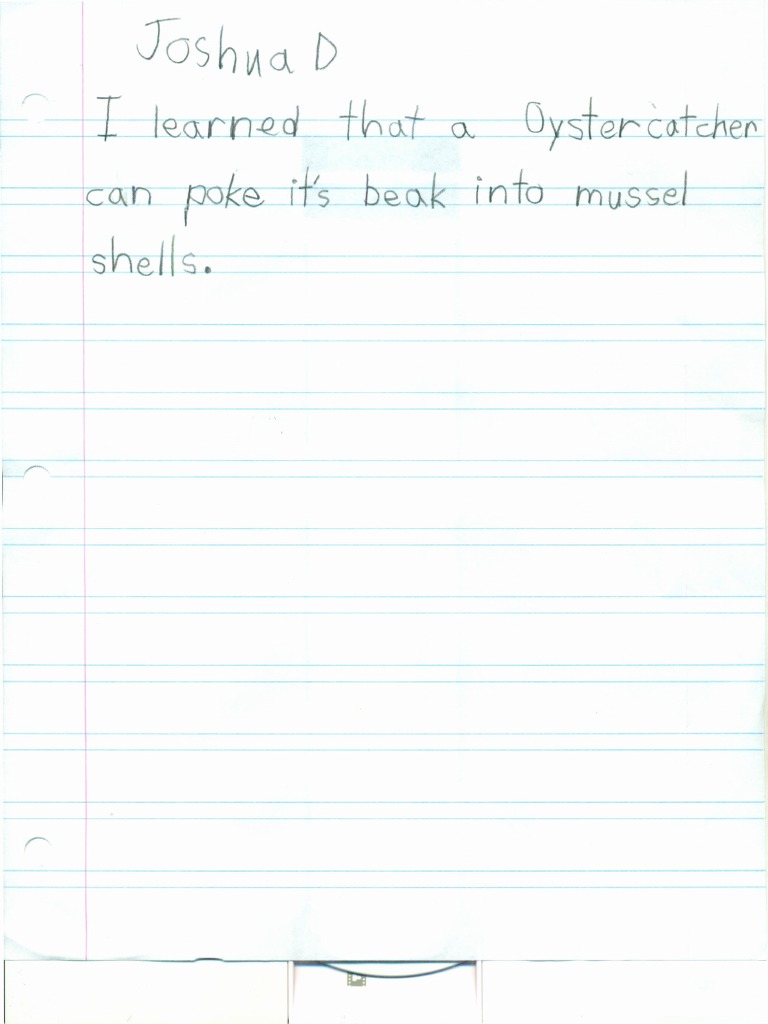 Joshua D
I learned that a Oystercatcher
can poke it's beak into mussel
shells.